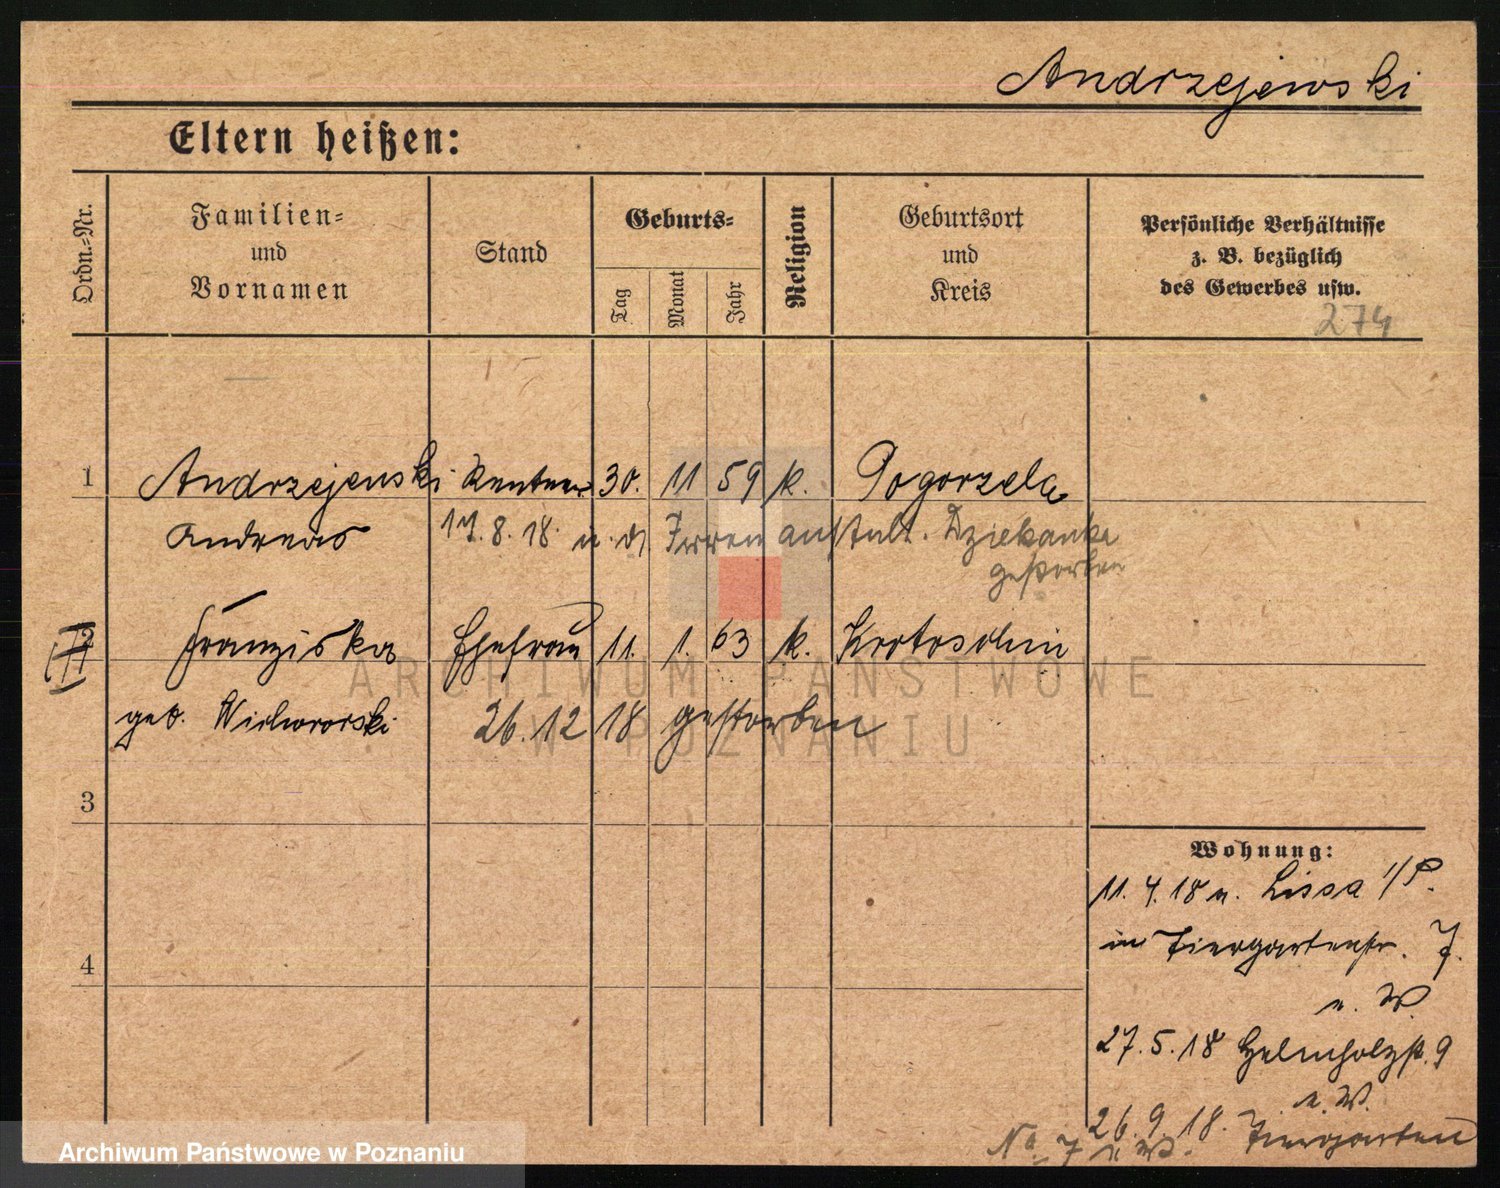 Andrzejewski
Eltern heißen:
Ordn.=Nr.
Familien=
und
Vornamen
Stand
Geburts=
Tag
Monat
Jahr
Religion
Geburtsort
und
Kreis
Persönliche Verhältnisse
z. B. bezüglich
des Gewerbes usw.
274
1 Andrzejewski Rentner 30. 11 59 k. Pogorzela
Andreas 17. 8. 18. in d Irrenanstalt. Dziekanka
gestorben
2 Franziska Ehefrau 11. 1. 63 k. Krotoschin
geb. 26. 12 18 gestorben
3
4
Wohnung:
11. 4. 18 v. Lissa i/P.
in Tiergartenstr. 7.
n. W.
27. 5. 18 Helmholzstr. 9
n. W.
26. 9. 18. Tiergarten
No. 7 n. W.
ARCHIWUM PAŃSTWOWE
W POZNANIU
Archiwum Państwowe w Poznaniu